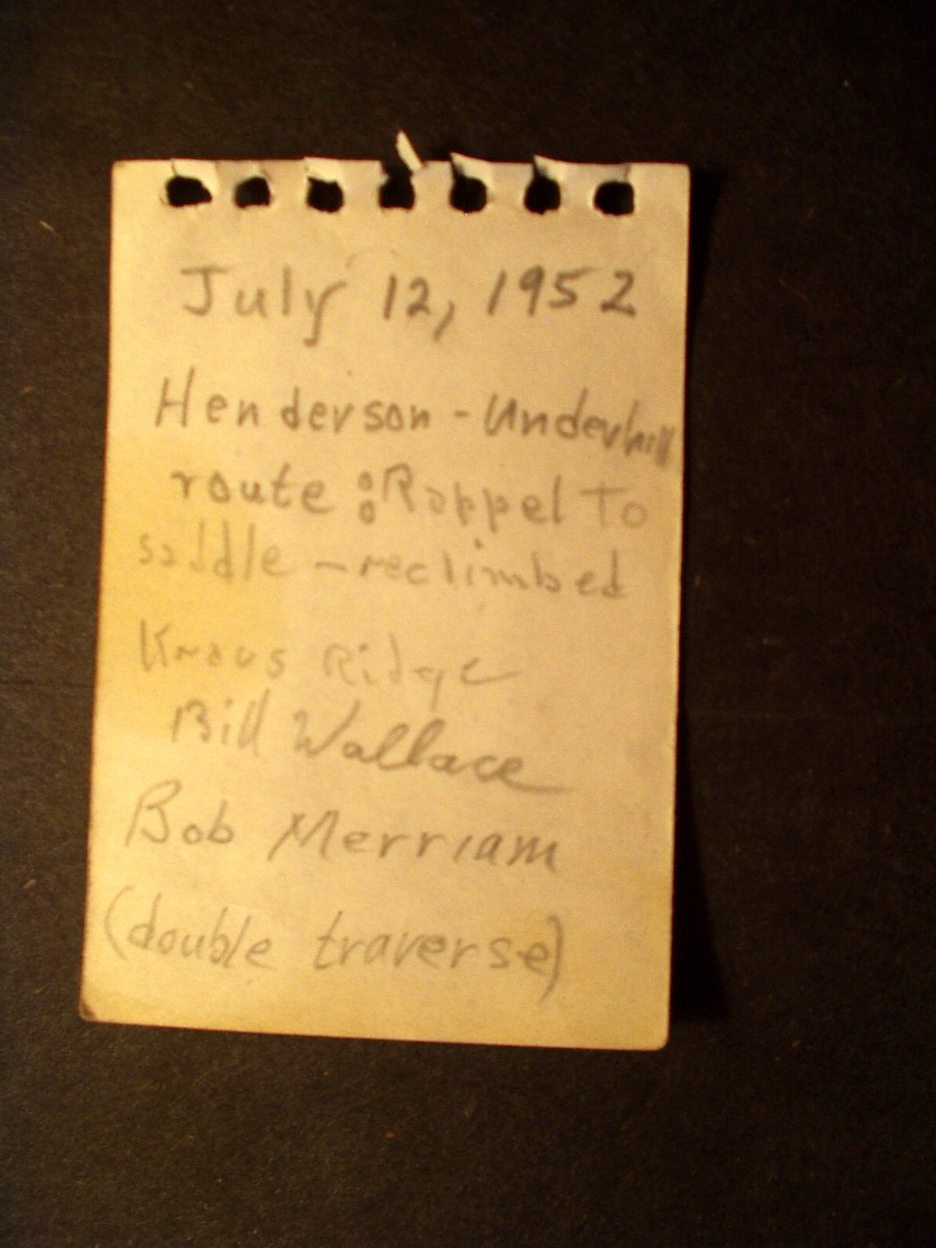 July 12, 1952
Henderson - Underhill
route : Rappel To
saddle - reclimbed
Kraus Ridge
Bill Wallace
Bob Merriam
(double traverse)